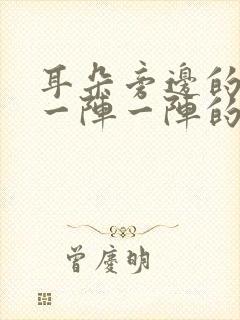 耳朵旁邊的
一陣一陣的
曾慶明